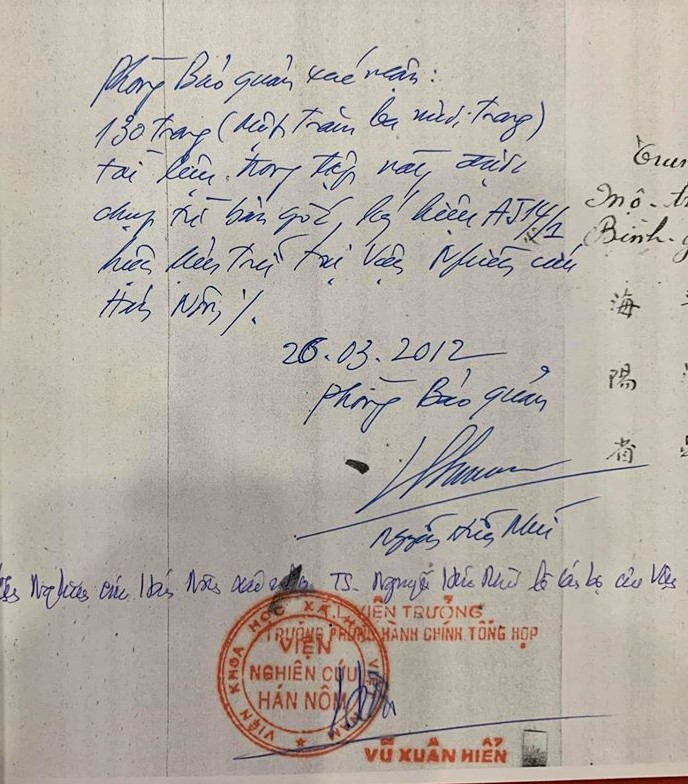 Phòng Bảo quản xác nhận:
130 trang (Một trăm ba mươi trang)
tài liệu trong tập này được
chụp từ bản gốc, ký hiệu AJ14/1
hiện lưu trữ tại Viện Nghiên cứu
Hán Nôm ./.
26.03.2012
Phòng Bảo quản
Nguyễn Hữu
Viện Nghiên cứu Hán Nôm xác nhận TS. Nguyễn Hữu là cán bộ của Viện
VIỆN KHOA HỌC XÃ HỘI VIỆT NAM
VIỆN
NGHIÊN CỨU
HÁN NÔM
VIỆN TRƯỞNG
TRƯỞNG PHÒNG HÀNH CHÍNH TỔNG HỢP
VŨ XUÂN HIỂN
Mộ-
Bình-
海
陽
省